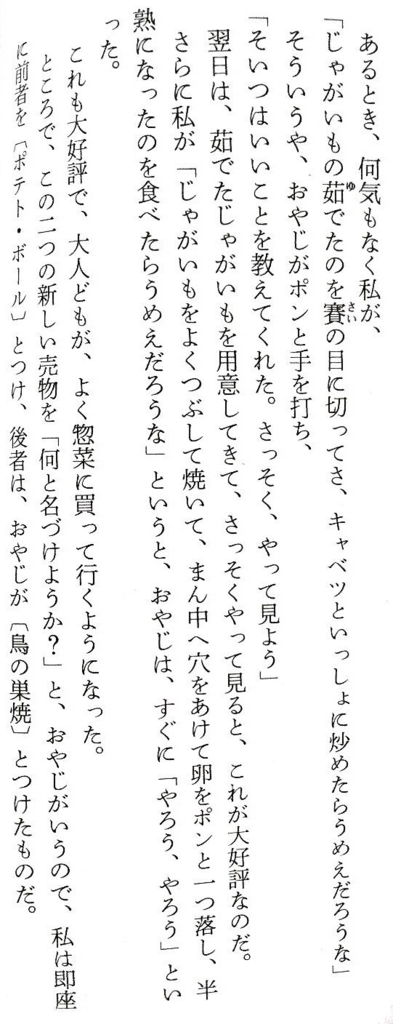 あるとき、何気もなく私が、
「じゃがいもの茹でたのを賽の目に切ってさ、キャベツといっしょに炒めたらうめえだろうな」
そういうや、おやじがポンと手を打ち、
「そいつはいいことを教えてくれた。さっそく、やって見よう」
翌日は、茹でたじゃがいもを用意してきて、さっそくやって見ると、これが大好評なのだ。
さらに私が「じゃがいもをよくつぶして焼いて、まん中へ穴をあけて卵をポンと一つ落し、半
熟になったのを食べたらうめえだろうな」というと、おやじは、すぐに「やろう、やろう」とい
った。
これも大好評で、大人どもが、よく惣菜に買って行くようになった。
ところで、この二つの新しい売物を「何と名づけようか?」と、おやじがいうので、私は即座
に前者を〔ポテト・ボール〕とつけ、後者は、おやじが〔鳥の巣焼〕とつけたものだ。